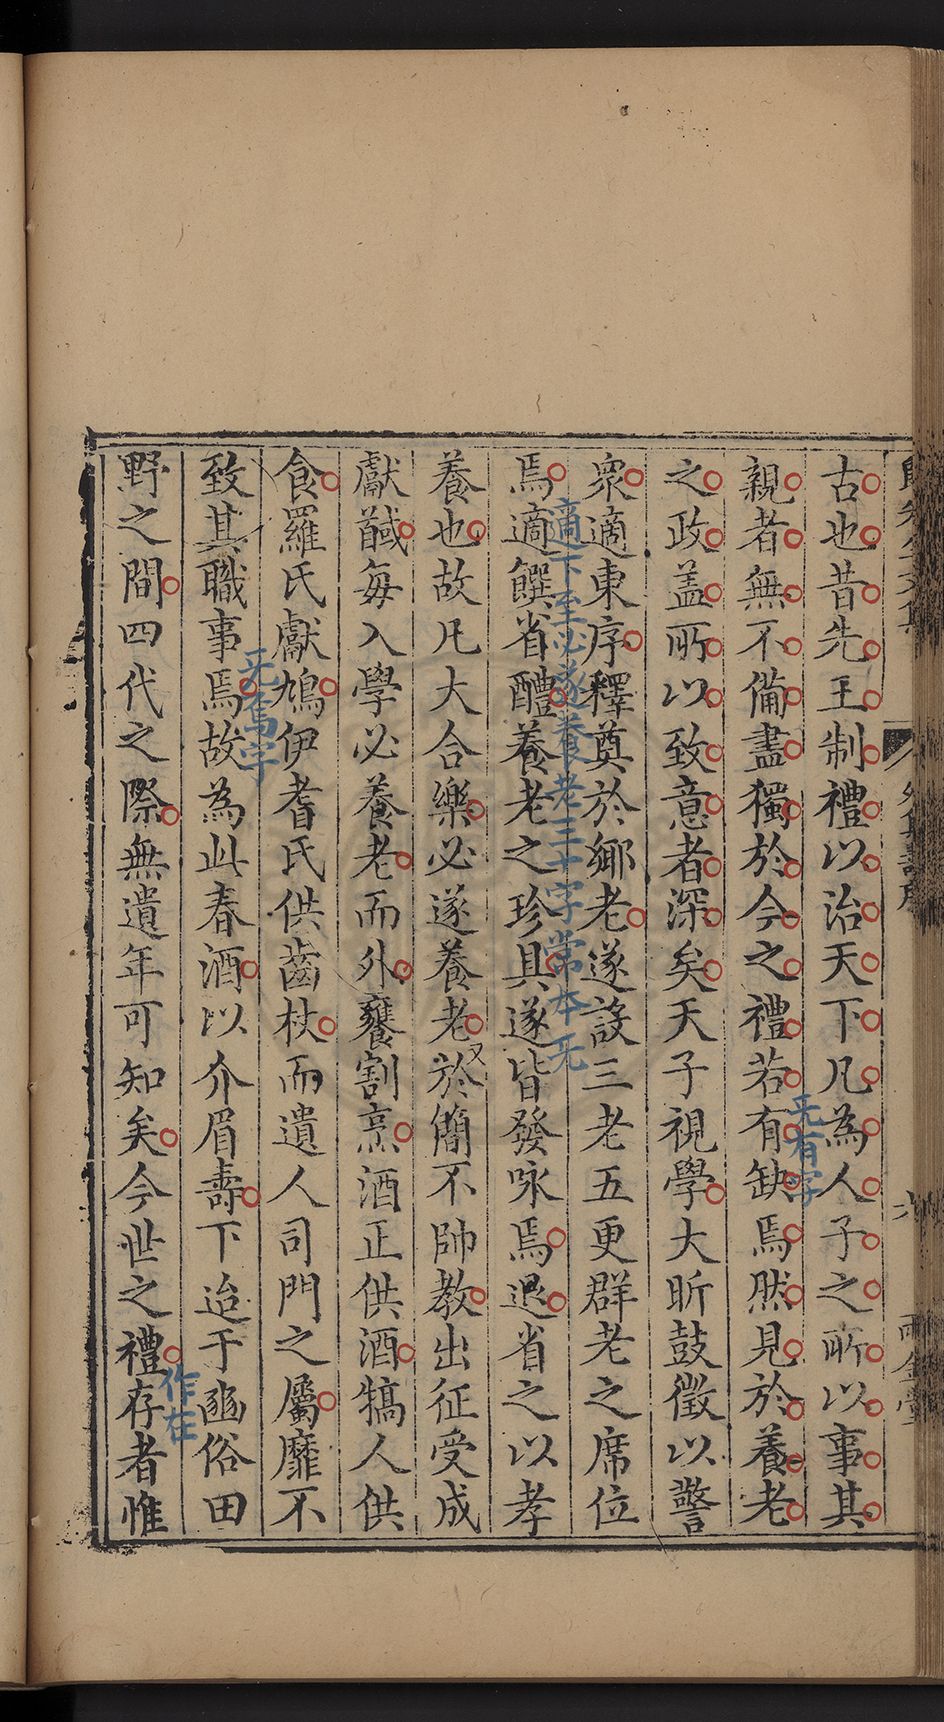 古也昔先王制禮以治天下凡為人子之所以事其
親者無不備盡獨於今之禮若有缺焉然見於養老
无有字
之政盖所以致意者深矣天子視學大昕鼓徵以警
衆適東序釋奠於鄉老遂設三老五更群老之席位
焉適饌省醴養老之珍具遂皆發咏焉退省之以孝
適下至必遂養老三十字常本无
養也故凡大合樂必遂養老又於簡不帥教出征受成
獻馘每入學必養老而外饔割烹酒正供酒犒人供
食羅氏獻鳩伊耆氏供齒杖而遺人司門之屬靡不
无焉字
致其職事焉故為此春酒以介眉壽下迨于豳俗田
野之間四代之際無遺年可知矣今世之禮存者惟
作在